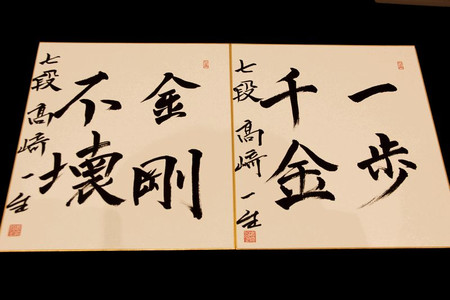 一歩
千金
七段 高﨑一生
金剛
不壊
七段 高﨑一生